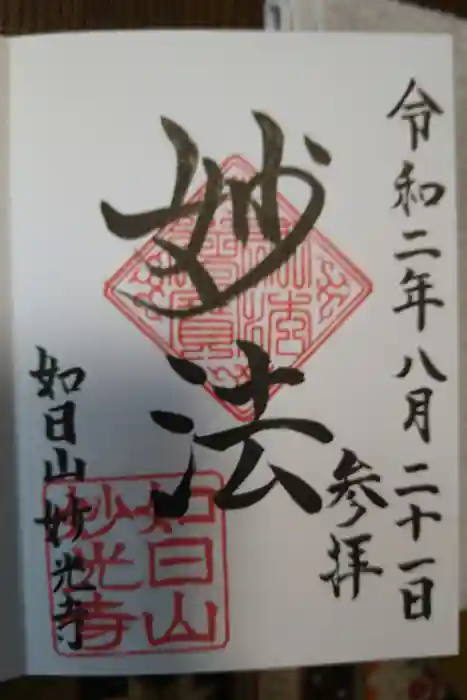 令和二年八月二十一日
参拝
妙法
如日山妙光寺
如日山
妙光寺